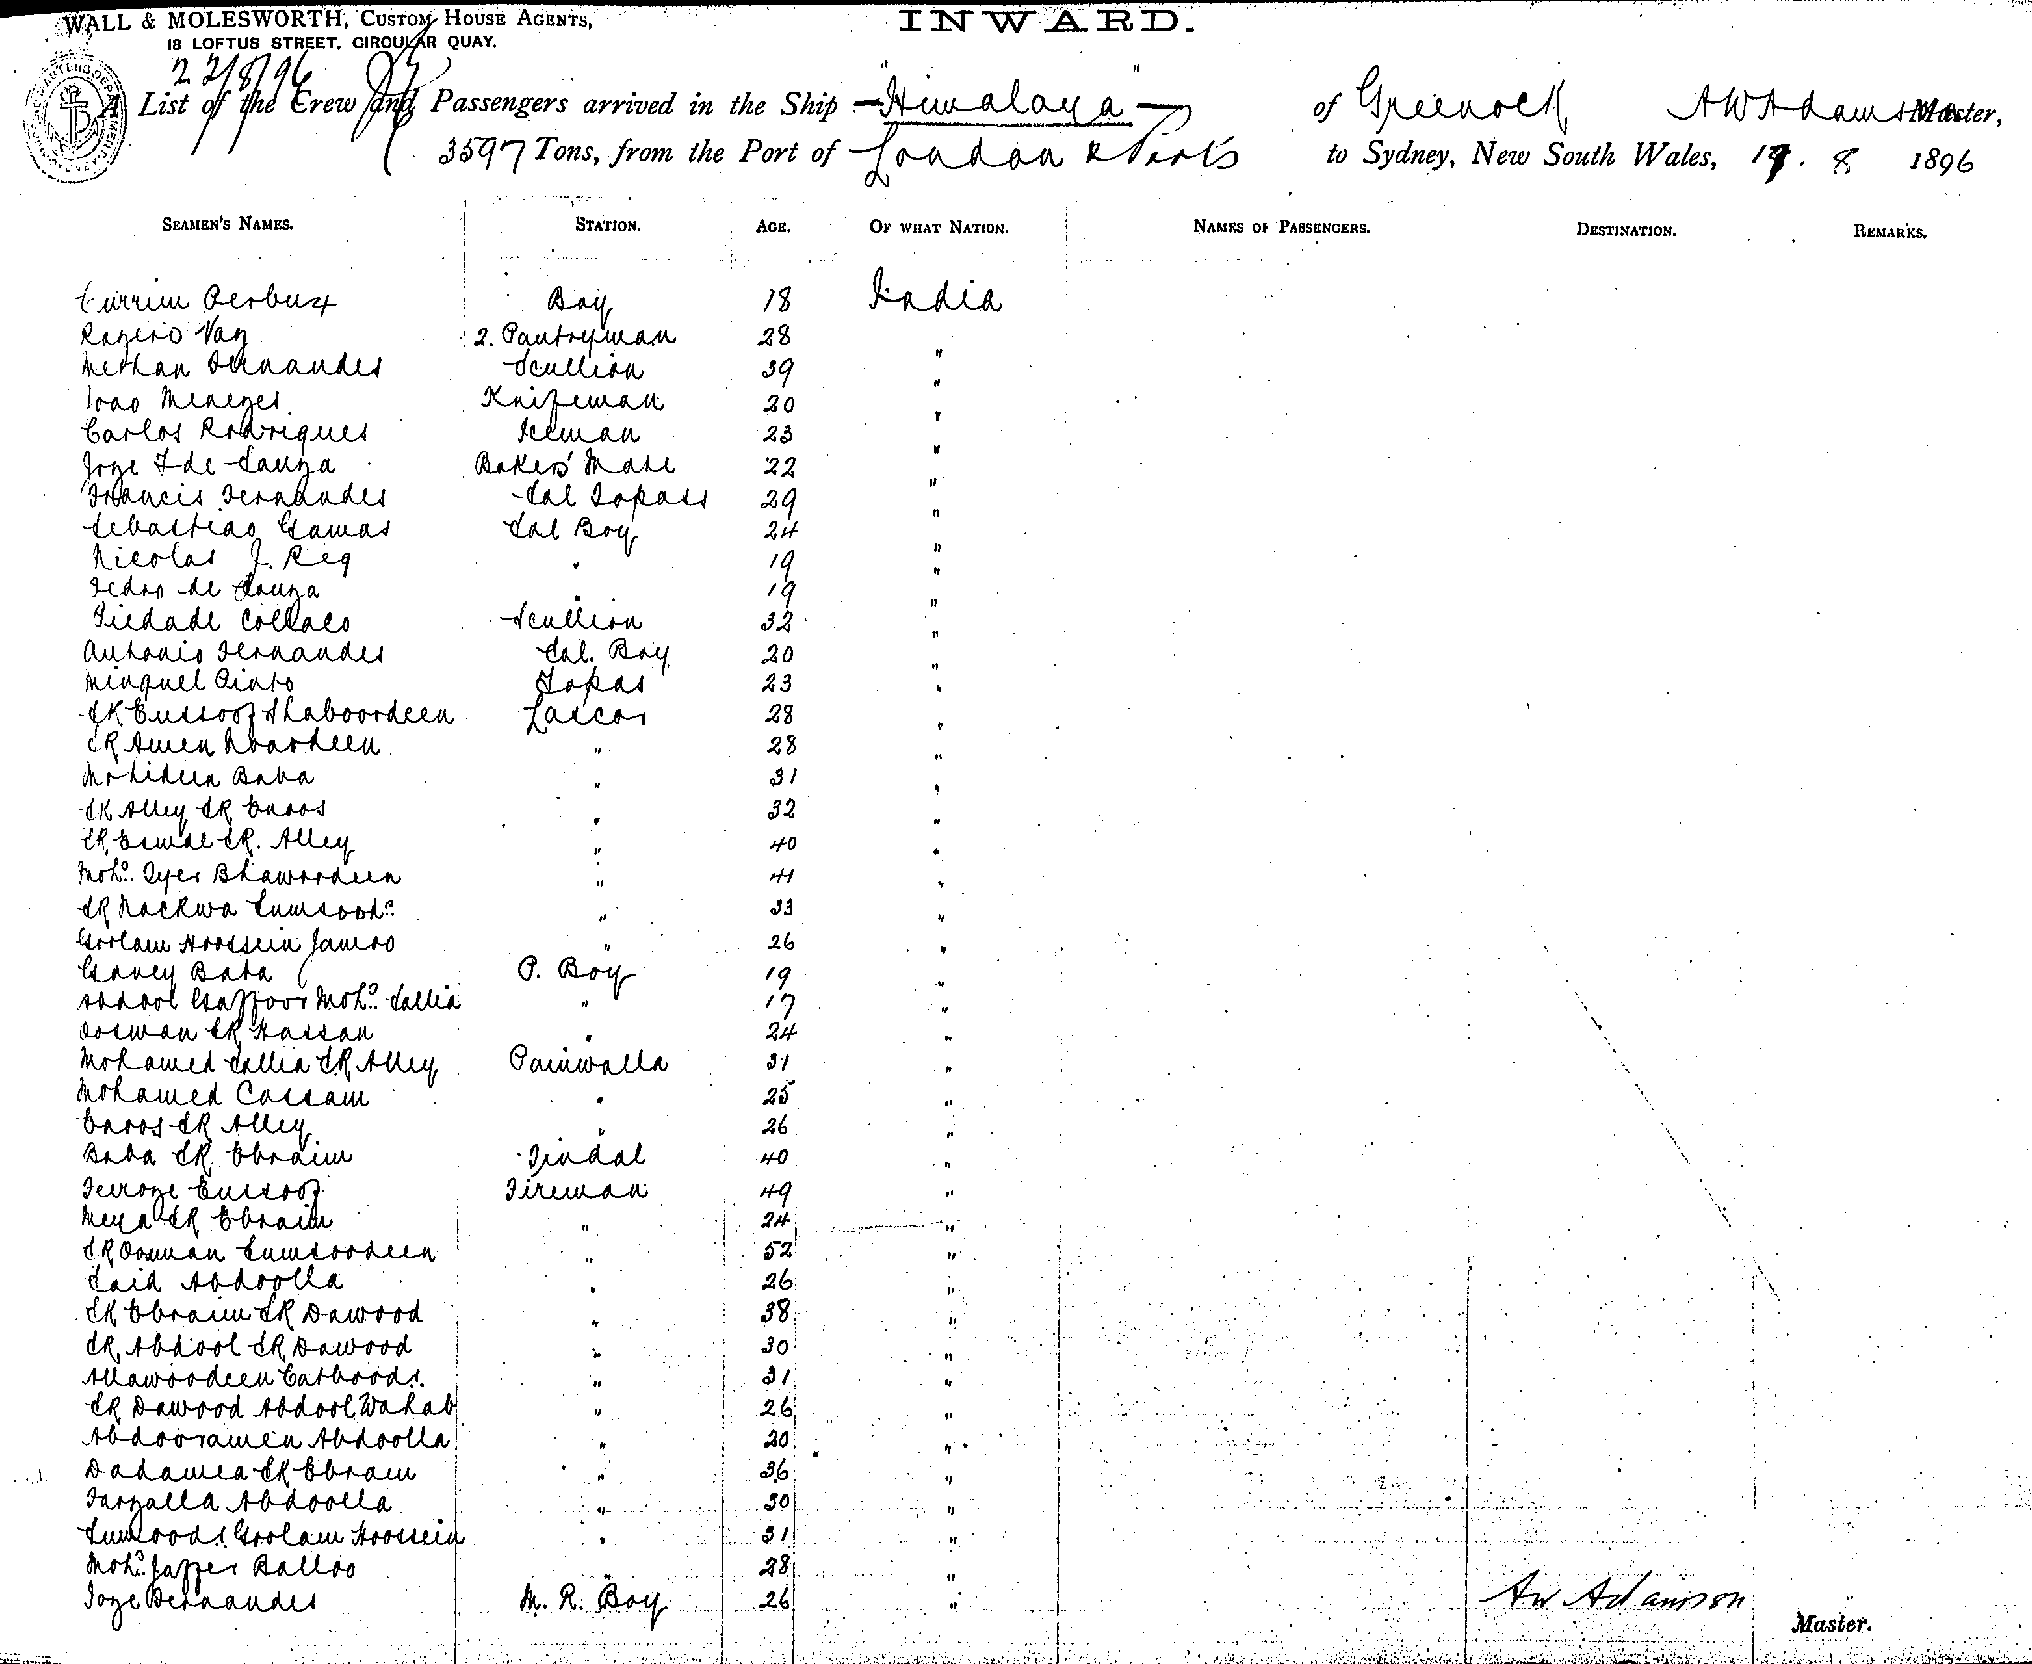 WALL & MOLESWORTH, CUSTOM HOUSE AGENTS,
18 LOFTUS STREET, CIRCULAR QUAY.
INWARD.
22/8/96
A List of the Crew and Passengers arrived in the Ship "Himalaya" of Greenock A W Adamson Master,
3597 Tons, from the Port of London & Ports to Sydney, New South Wales, 19. 8 1896
SEAMEN'S NAMES. STATION. AGE. OF WHAT NATION. NAMES OF PASSENGERS. DESTINATION. REMARKS.
Currim Peerbux Boy 18 India
Rozerio Vaz 2. Pantryman 28 "
Methan Fernandes Scullion 39 "
Joao Menezes Knifeman 20 "
Carlos Rodrigues Iceman 23 "
Joze F de Souza Bakers' Mate 22 "
Francis Fernandes Sal Topass 29 "
Sebastiao Gamas Sal Boy 24 "
Nicolas J. Reg " 19 "
Pedro de Souza " 19 "
Piedade Collaco Scullion 32 "
Antonio Fernandes Sal. Boy 20 "
Minquel Pinto Topas 23 "
SK Eussoof Shaboordeen Lascar 28 "
SK Amen Noordeen " 28 "
Mohideen Baba " 31 "
SK Alley SK Enoos " 32 "
SK Esmal SK. Alley " 40 "
Moh.d Iyer Bhawordeen " 41 "
SK Mackwa Sumsood.n " 33 "
Goolam Hoossein Jamoo " 26 "
Ganey Baba P. Boy 19 "
Abdool Gaffoor Moh.d Sallia " 17 "
Oosman SK Hassan " 24 "
Mohamed Sallia SK Alley Paniwalla 31 "
Mohamed Cassam " 25 "
Enoos SK Alley " 26 "
Baba SK Ebraim Tindal 40 "
Feroze Eussoof Fireman 49 "
Meya SK Ebraim " 24 "
SK Oosman Sumsoordeen " 52 "
Said Abdoolla " 26 "
SK Ebraim SK Dawood " 38 "
SK Abdool SK Dawood " 30 "
Allawoodeen Catboods. " 31 "
SK Dawood Abdool Wahab " 26 "
Abdooramen Abdoolla " 20 "
Dadamea SK Ebraim " 36 "
Farzalla Abdoolla " 30 "
Sumsood.n Goolam Hoossein " 31 "
Moh.d Jaffer Balloo " 28 "
Joze Bernandes M. R. Boy 26 "
A W Adamson
Master.